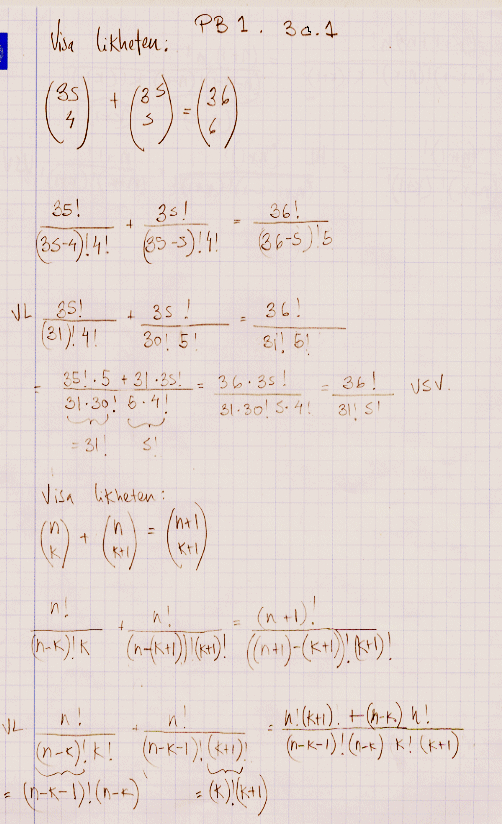 PB 1. 3a.1
Visa likheten:
(35 4) + (35 5) = (36 6)
35!/((35-4)!4!) + 35!/((35-5)!4!) = 36!/((36-5)!5)
VL 35!/((31)!4!) + 35!/(30!5!) = 36!/(31!5!)
= (35!·5 + 31·35!)/(31·30! 5·4!) = (36·35!)/(31·30! 5·4!) = 36!/(31! 5!) VSV.
= 31! 5!
Visa likheten:
(n k) + (n k+1) = (n+1 k+1)
n!/((n-k)!k) + n!/((n-(k+1))!(k+1)!) = (n+1)!/(((n+1)-(k+1))!(k+1)!)
VL n!/((n-k)!k!) + n!/((n-k-1)!(k+1)!) = (n!(k+1)! + (n-k) n!)/((n-k-1)!(n-k) k! (k+1))
= (n-k-1)!(n-k) = (k)!(k+1)